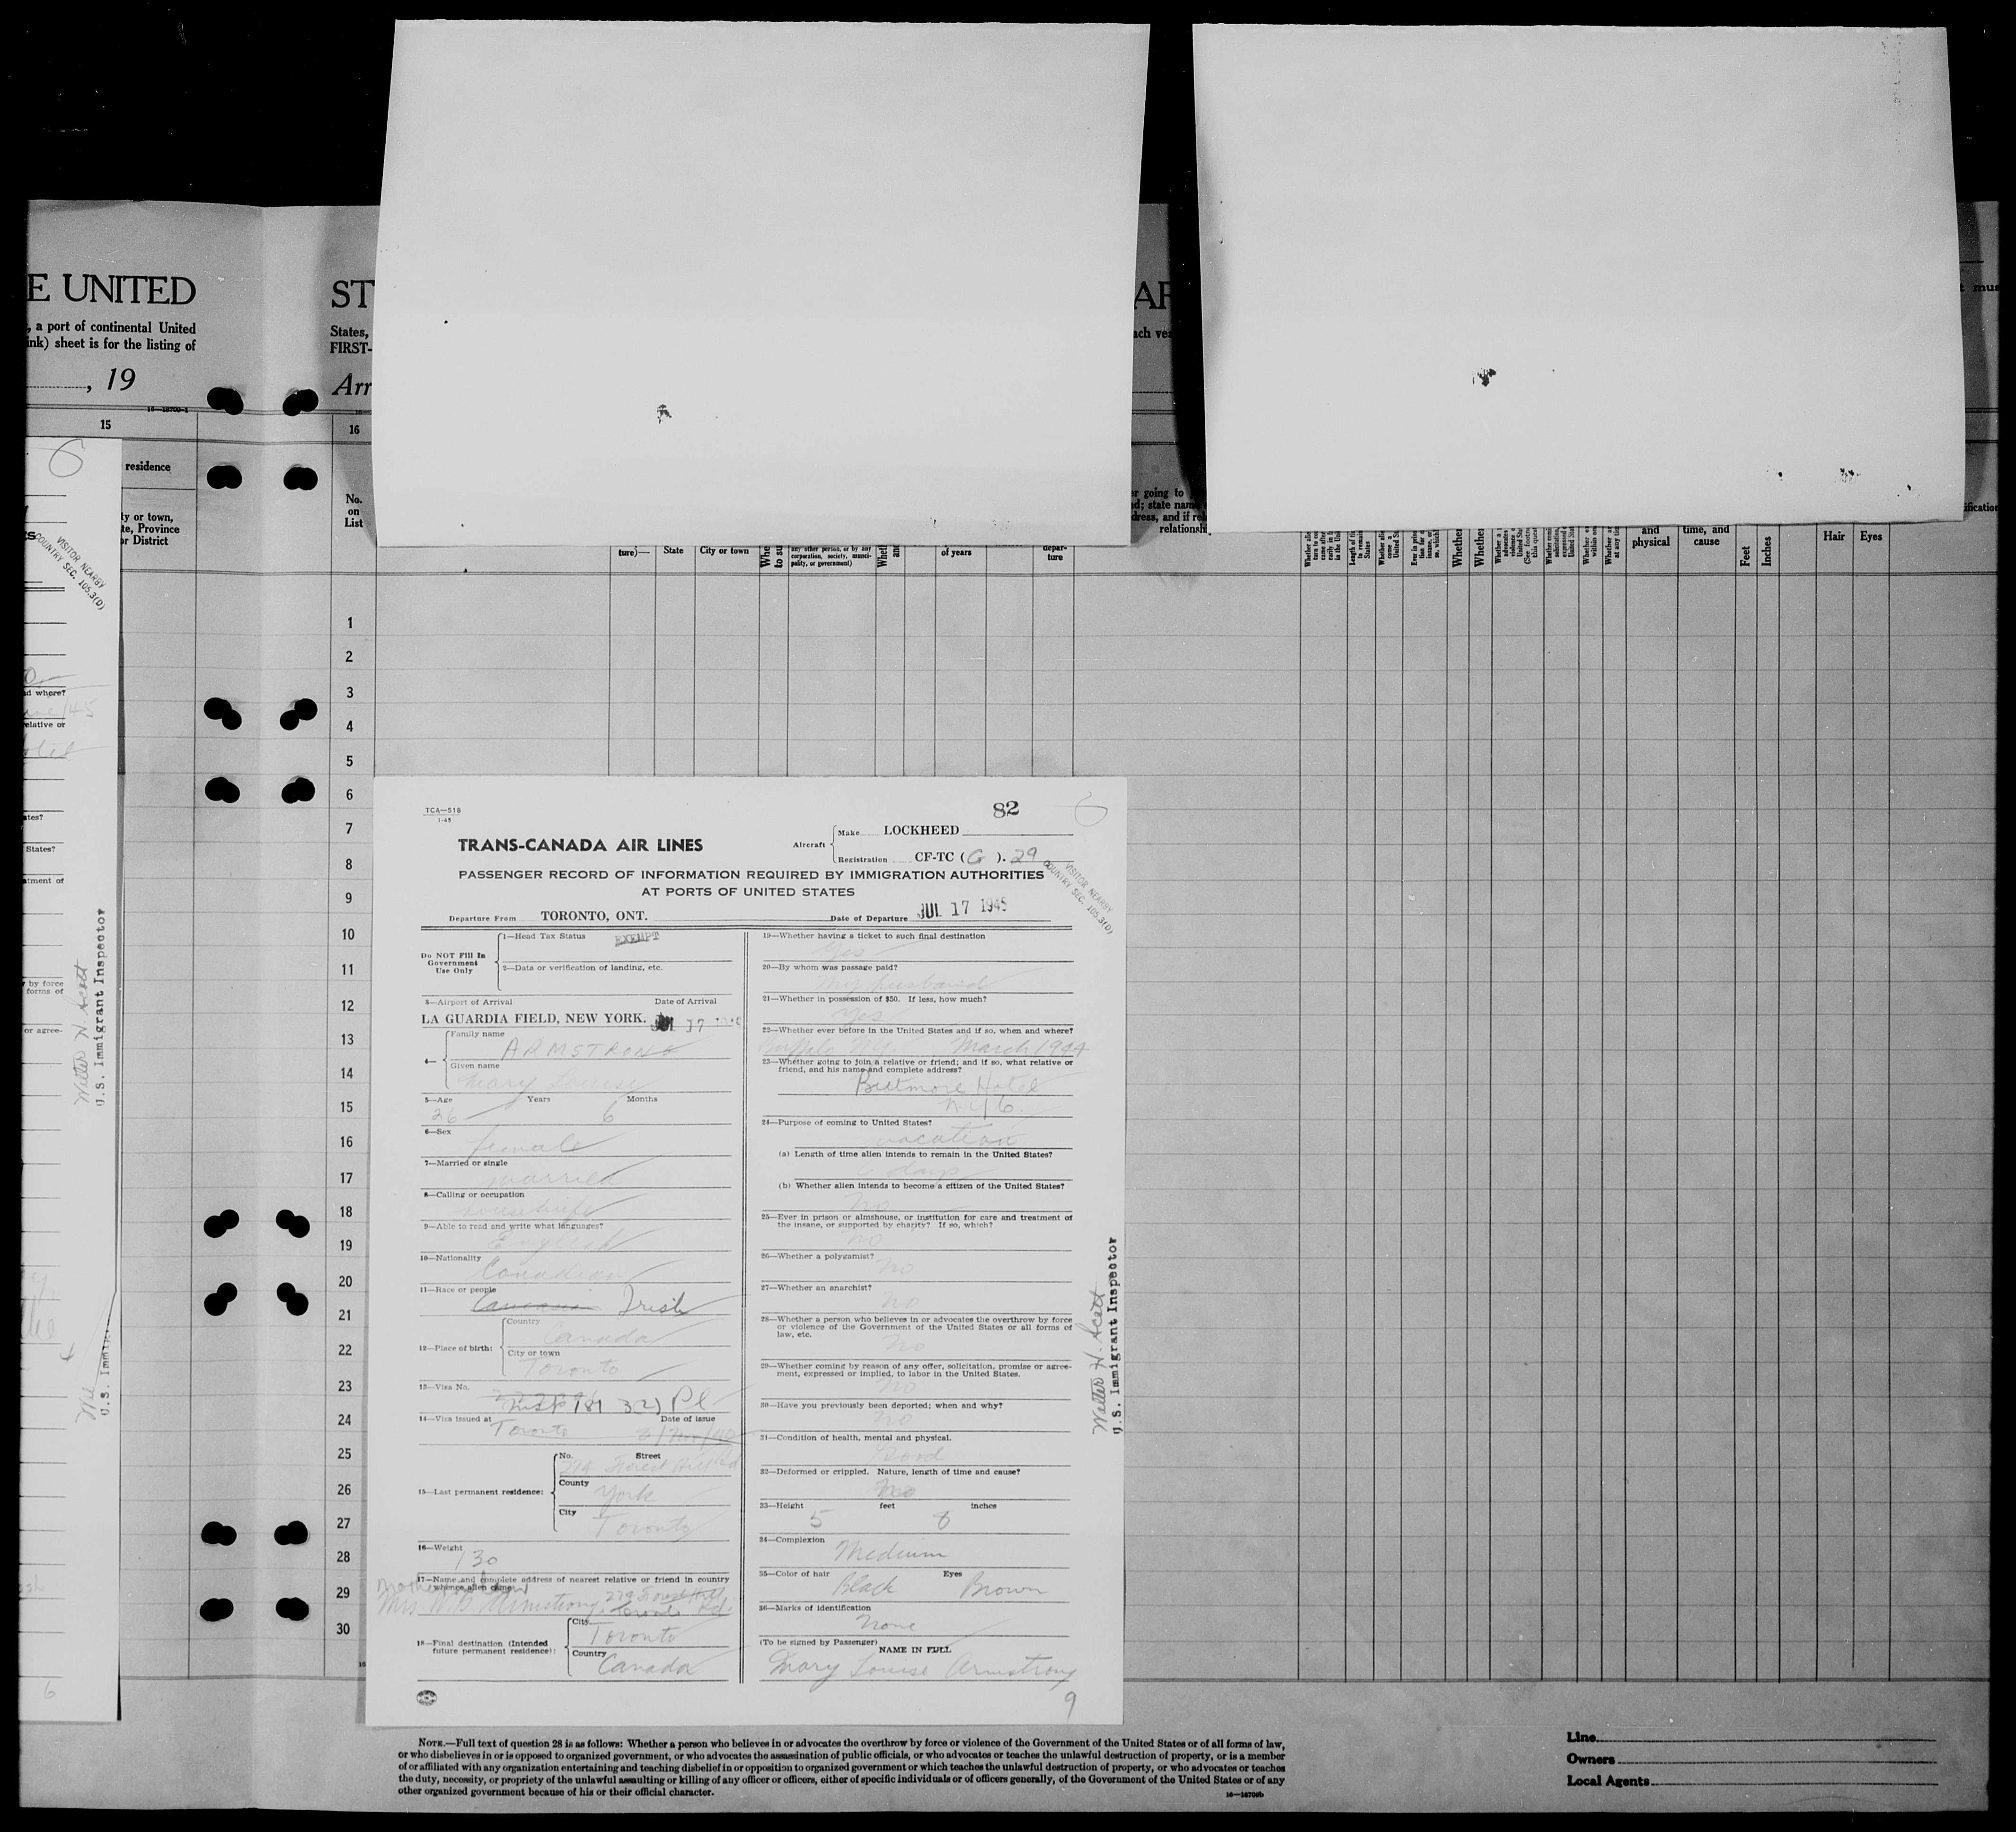 E UNITED
, a port of continental United
ink) sheet is for the listing of
, 19
16—18700-1
15
residence
ty or town,
te, Province
or District
VISITOR NEARBY
COUNTRY SEC. 105.3(D)
d where?
elative or
ates?
States?
atment of
by force
forms of
or agree-
Walter H. Scott
U.S. Immigrant Inspector
U.S. Immig
6
ST
States,
FIRST-
Arr
16
No.
on
List
AR
ach yea
r going to
nd; state name
dress, and if rel
relationsh
t mus
ification
ture)—
State
City or town
any other person, or by any
corporation, society, munici-
pality, or government)
of years
depar-
ture
Whether
Whether
and
physical
time, and
cause
Feet
Inches
Hair
Eyes
1
2
3
4
5
6
7
8
9
10
11
12
13
14
15
16
17
18
19
20
21
22
23
24
25
26
27
28
29
30
TCA—518
1-45
82
TRANS-CANADA AIR LINES
Aircraft
Make LOCKHEED
Registration CF-TC ( G ). 29
PASSENGER RECORD OF INFORMATION REQUIRED BY IMMIGRATION AUTHORITIES
AT PORTS OF UNITED STATES
VISITOR NEARBY
COUNTRY SEC. 105.3(D)
Departure From TORONTO, ONT. Date of Departure JUL 17 1945
Do NOT Fill In
Government
Use Only
1—Head Tax Status EXEMPT
2—Data or verification of landing, etc.
3—Airport of Arrival Date of Arrival
LA GUARDIA FIELD, NEW YORK. JUL 17
4—
Family name
ARMSTRONG
Given name
Mary Louise
5—Age Years Months
26 6
6—Sex
female
7—Married or single
married
8—Calling or occupation
housewife
9—Able to read and write what languages?
English
10—Nationality
Canadian
11—Race or people
Caucasian Irish
12—Place of birth:
Country
Canada
City or town
Toronto
13—Visa No.
14—Visa issued at Date of issue
Toronto
15—Last permanent residence:
No. Street
279 Forest Hill Rd
County
York
City
Toronto
16—Weight
130
17—Name and complete address of nearest relative or friend in country
whence alien came
Mother in law
Mrs. Armstrong 279 Forest Hill
Toronto Rd.
18—Final destination (Intended
future permanent residence):
City
Toronto
Country
Canada
19—Whether having a ticket to such final destination
Yes
20—By whom was passage paid?
My husband
21—Whether in possession of $50. If less, how much?
Yes
22—Whether ever before in the United States and if so, when and where?
Buffalo N.Y. March 1944
23—Whether going to join a relative or friend; and if so, what relative or
friend, and his name and complete address?
Biltmore Hotel
24—Purpose of coming to United States?
vacation
(a) Length of time alien intends to remain in the United States?
days
(b) Whether alien intends to become a citizen of the United States?
No
25—Ever in prison or almshouse, or institution for care and treatment of
the insane, or supported by charity? If so, which?
No
26—Whether a polygamist?
No
27—Whether an anarchist?
No
28—Whether a person who believes in or advocates the overthrow by force
or violence of the Government of the United States or all forms of
law, etc.
No
29—Whether coming by reason of any offer, solicitation, promise or agree-
ment, expressed or implied, to labor in the United States.
No
30—Have you previously been deported; when and why?
No
31—Condition of health, mental and physical.
Good
32—Deformed or crippled. Nature, length of time and cause?
No
33—Height feet inches
5 6
34—Complexion
Medium
35—Color of hair Eyes
Black Brown
36—Marks of identification
None
(To be signed by Passenger)
NAME IN FULL
Mary Louise Armstrong
9
Walter H. Scott
U.S. Immigrant Inspector
NOTE.—Full text of question 28 is as follows: Whether a person who believes in or advocates the overthrow by force or violence of the Government of the United States or of all forms of law,
or who disbelieves in or is opposed to organized government, or who advocates the assassination of public officials, or who advocates or teaches the unlawful destruction of property, or is a member
of or affiliated with any organization entertaining and teaching disbelief in or opposition to organized government or which teaches the unlawful destruction of property, or who advocates or teaches
the duty, necessity, or propriety of the unlawful assaulting or killing of any officer or officers, either of specific individuals or of officers generally, of the Government of the United States or of any
other organized government because of his or their official character.
16—18700b
Line
Owners
Local Agents